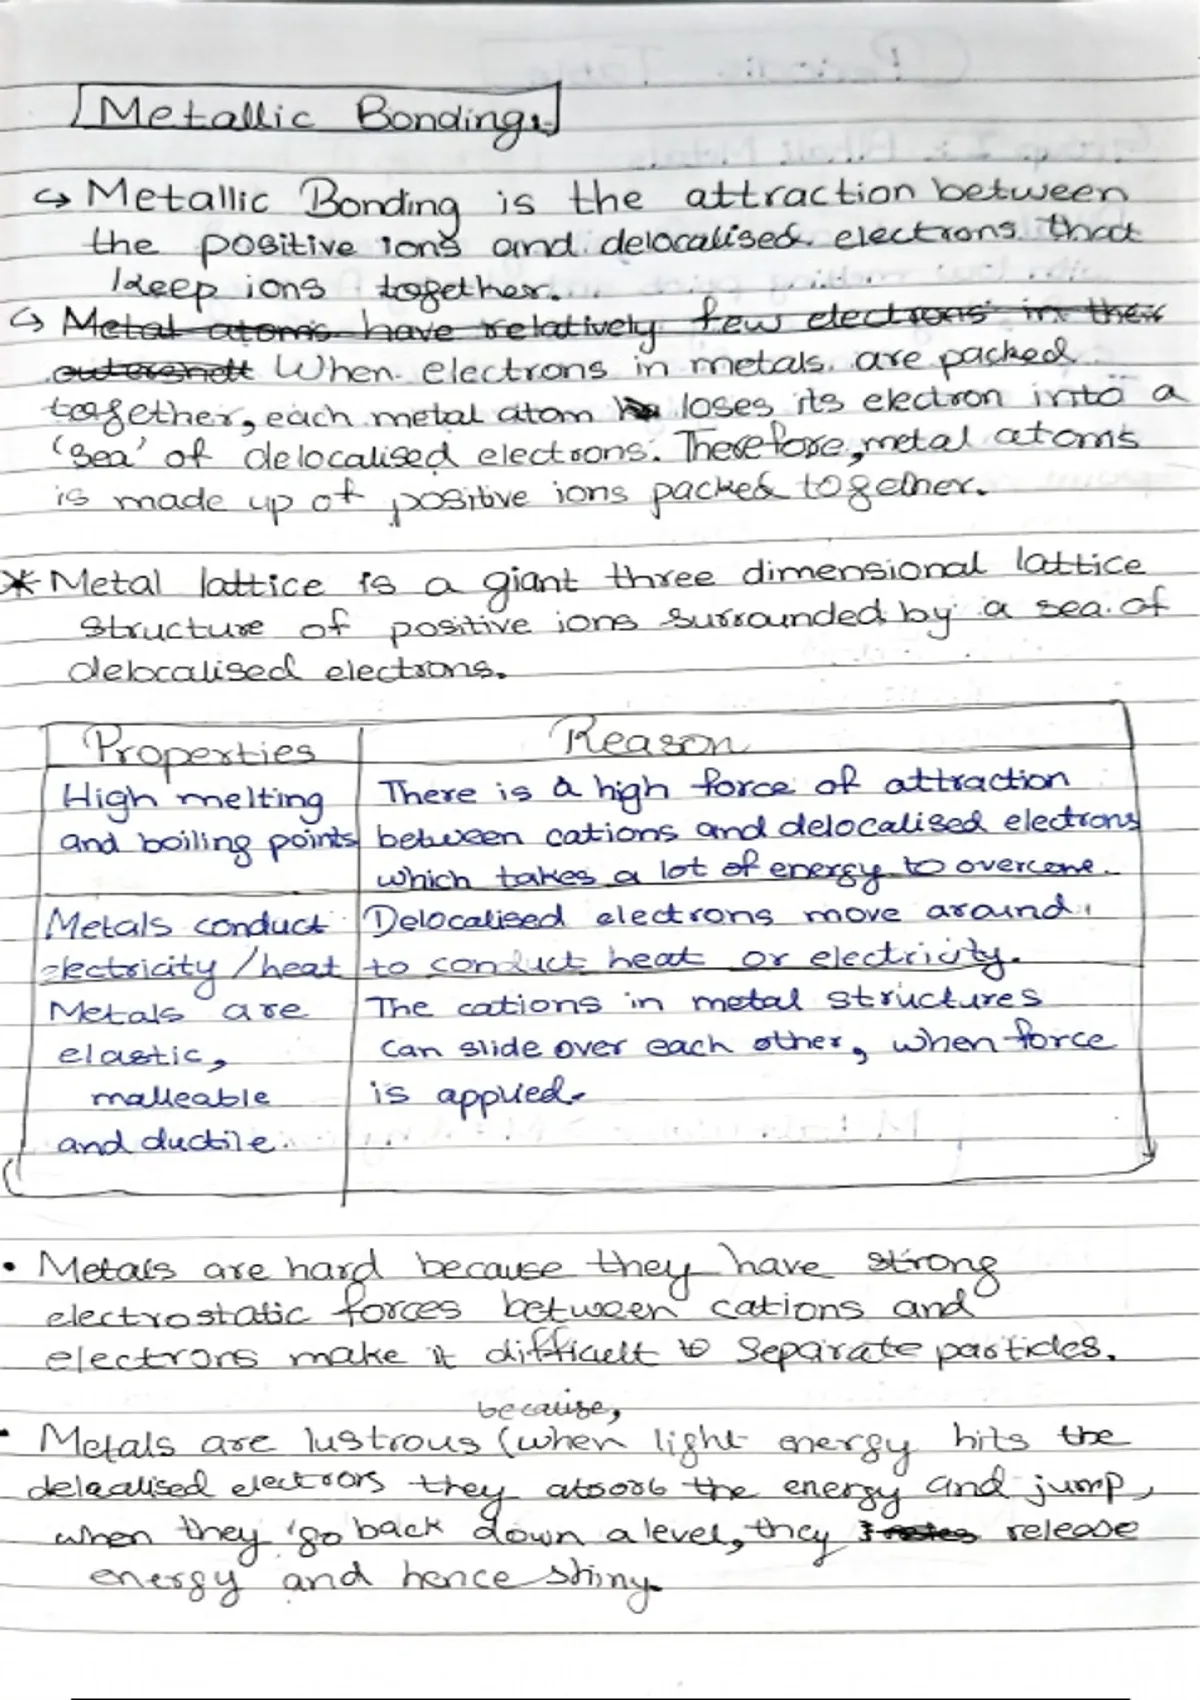 Metallic Bonding:
↪ Metallic Bonding is the attraction between
the positive ions and delocalised electrons that
keep ions together.
↪ Metal atoms have relatively few electrons in their
outershell When electrons in metals are packed
together, each metal atom loses its electron into a
'sea' of delocalised electrons. Therefore, metal atoms
is made up of positive ions packed together.
* Metal lattice is a giant three dimensional lattice
structure of positive ions surrounded by a sea of
delocalised electrons.
Properties | Reason
High melting | There is a high force of attraction
and boiling points | between cations and delocalised electrons
which takes a lot of energy to overcome.
Metals conduct | Delocalised electrons move around
electricity / heat | to conduct heat or electricity.
Metals are | The cations in metal structures
elastic, | can slide over each other, when force
malleable | is applied.
and ductile.
• Metals are hard because they have strong
electrostatic forces between cations and
electrons make it difficult to separate particles.
because,
• Metals are lustrous (when light energy hits the
delocalised electrons they absorb the energy and jump,
when they go back down a level, they release
energy and hence shiny.